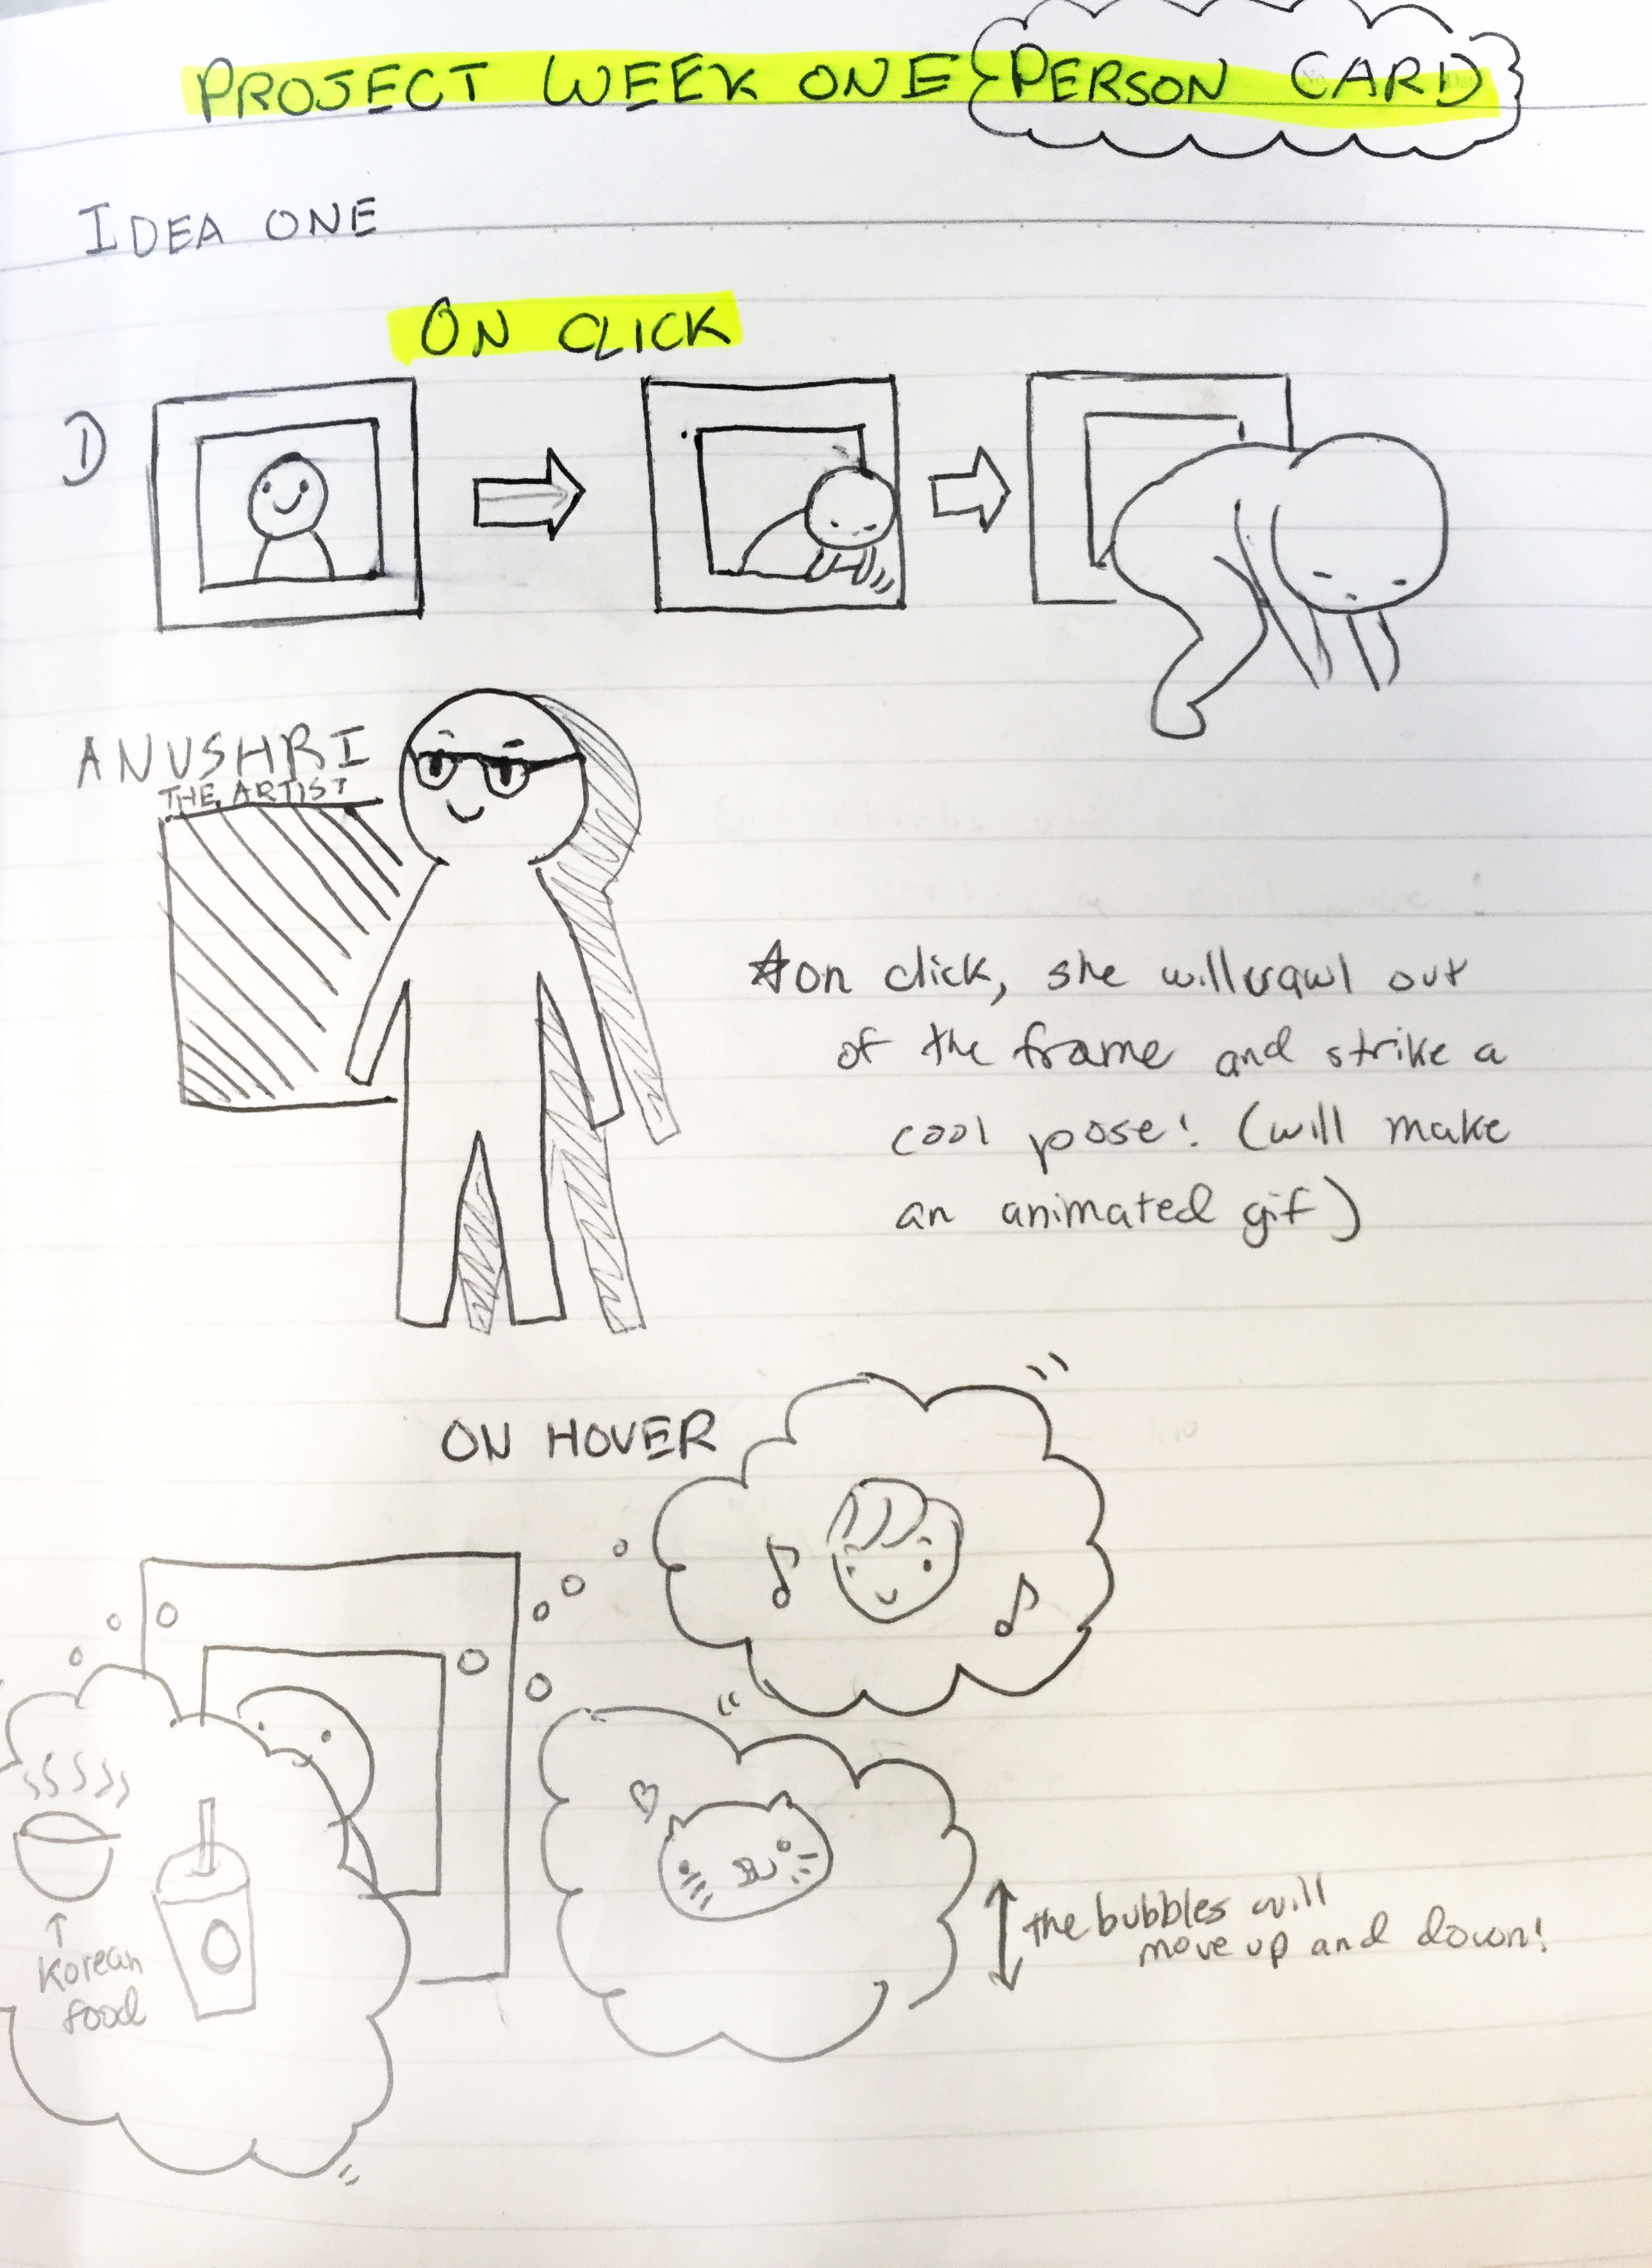 PROJECT WEEK ONE PERSON CARD
IDEA ONE
ON CLICK
1)
ANUSHRI
THE ARTIST
☆on click, she will crawl out
of the frame and strike a
cool pose! (will make
an animated gif)
ON HOVER
↑
Korean
food
the bubbles will
move up and down!